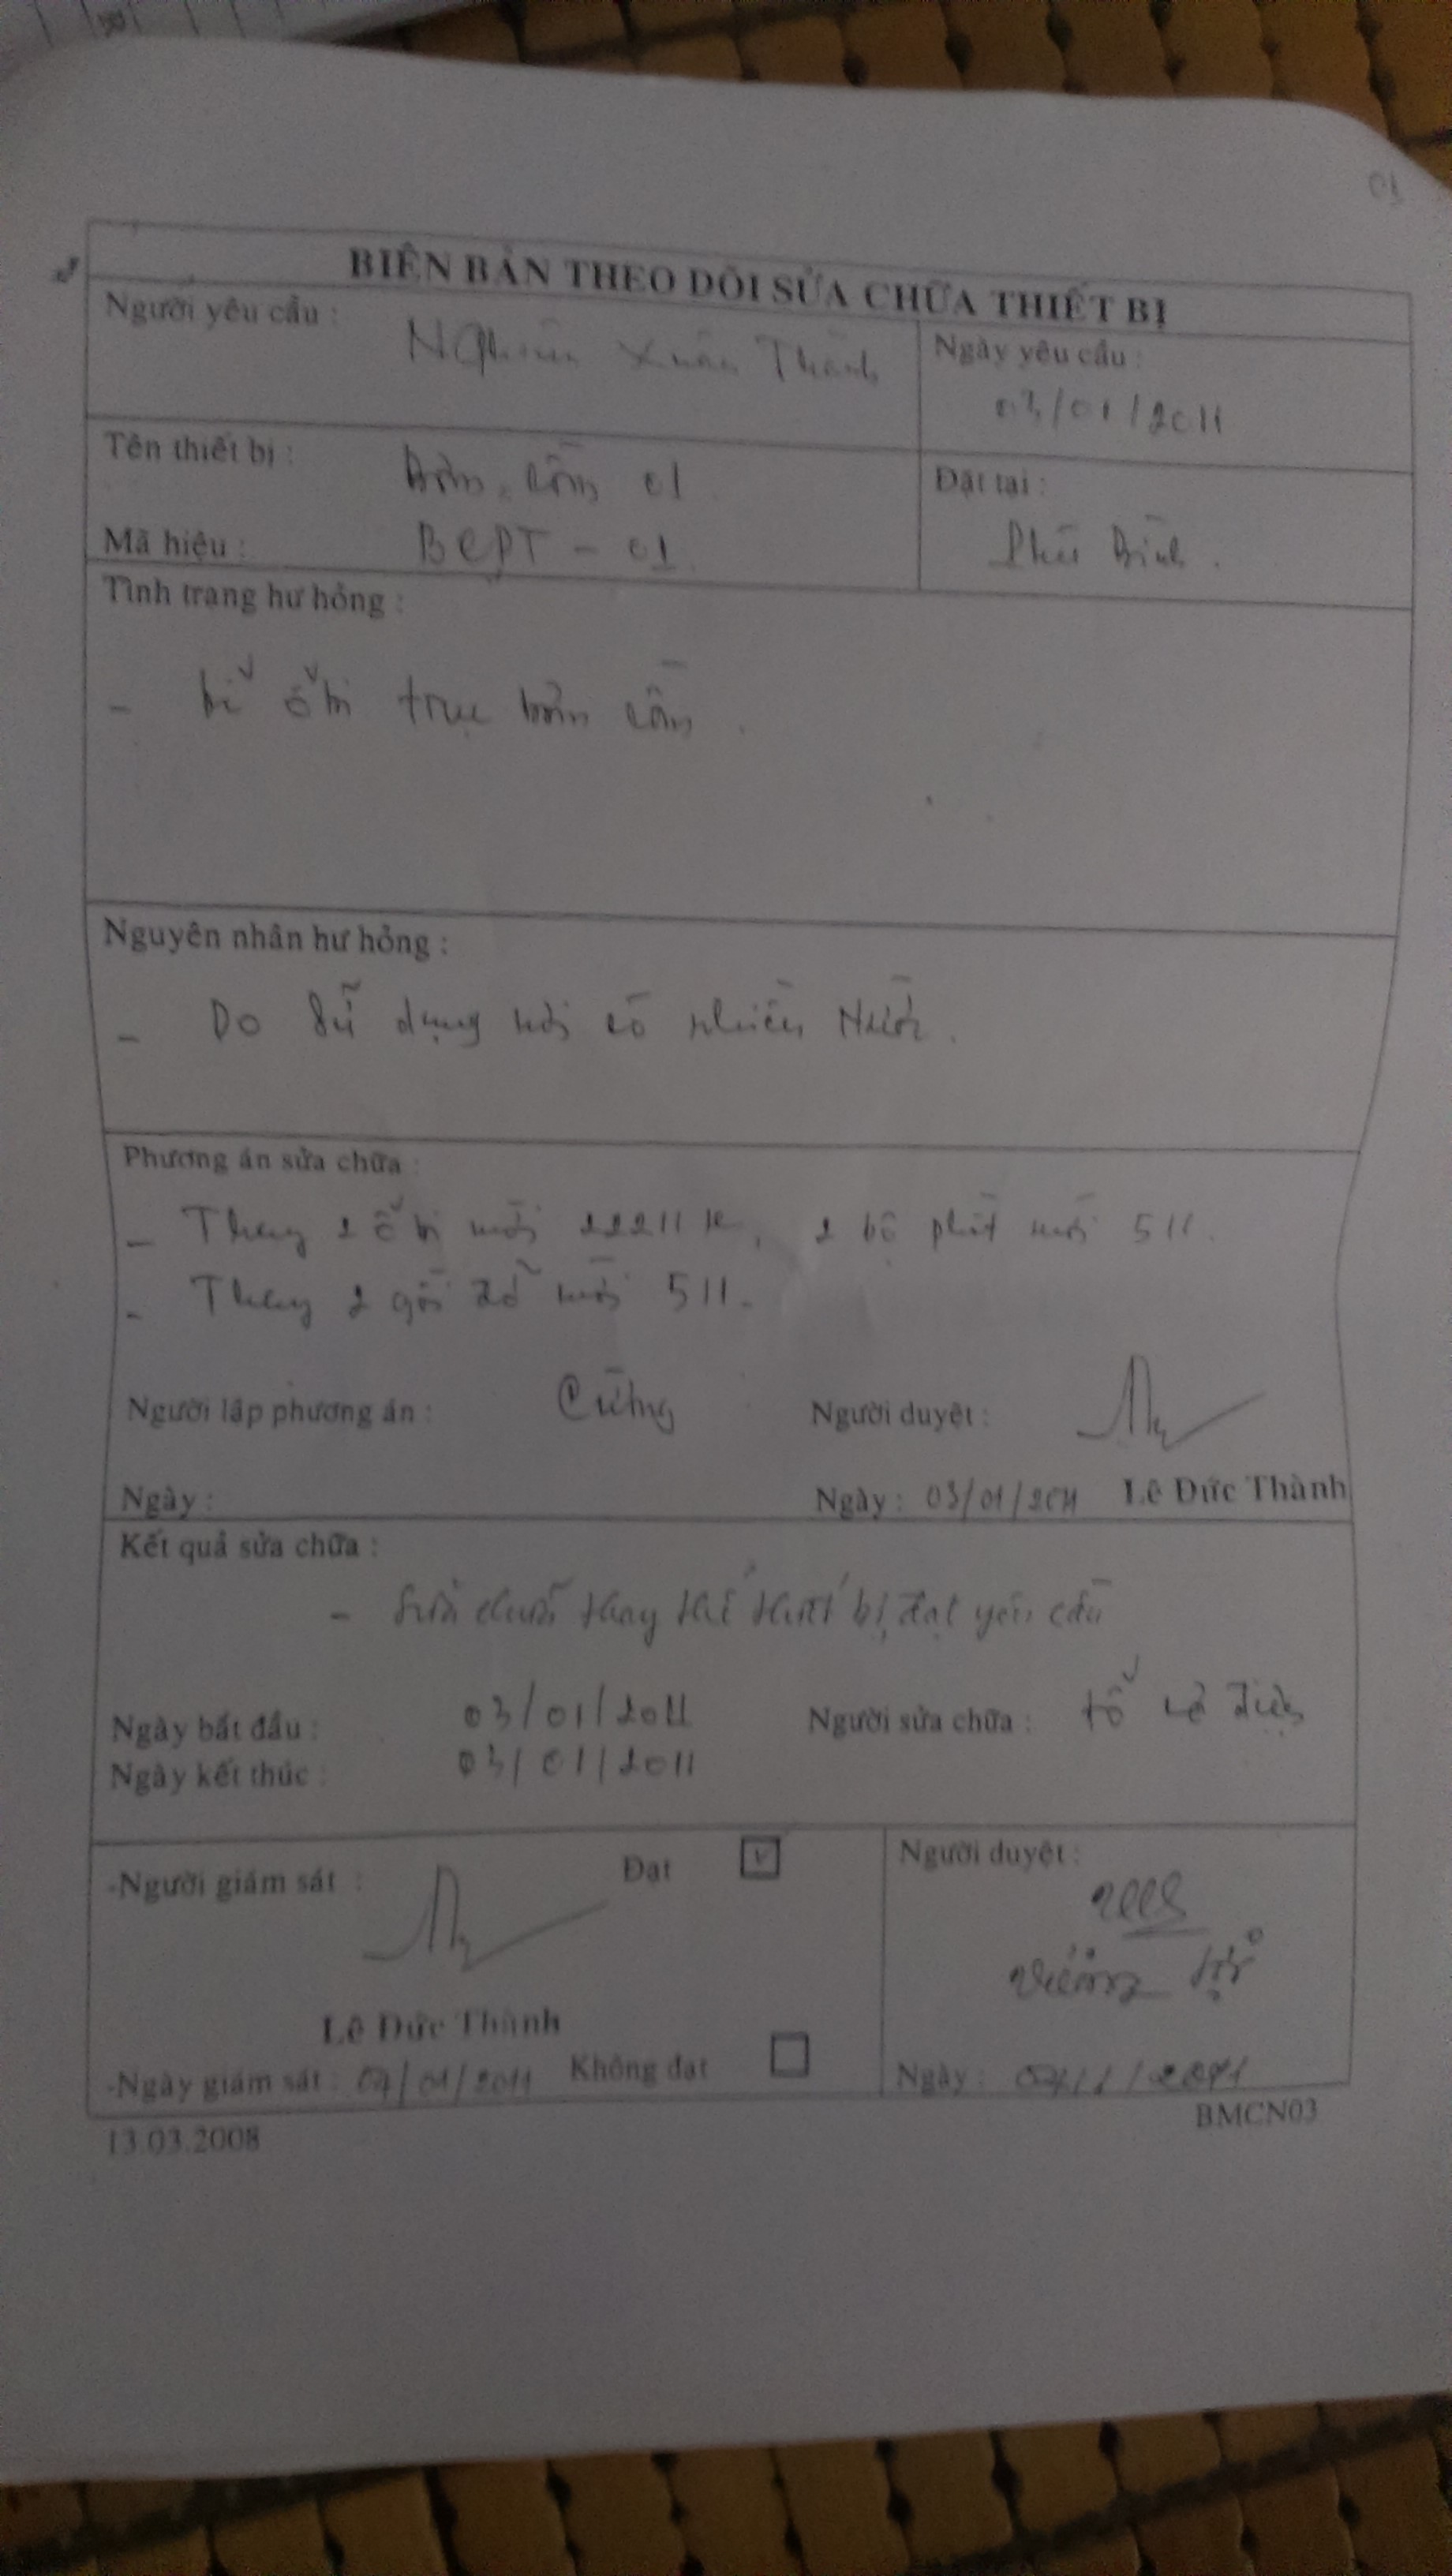 03
BIÊN BẢN THEO DÕI SỬA CHỮA THIẾT BỊ
Người yêu cầu : Xuân Thành
Ngày yêu cầu :
03/01/2011
Tên thiết bị : Bơm 01
Đặt tại :
Mã hiệu : BCPT - 01
Phú Bình .
Tình trạng hư hỏng :
- bể ổ bi trục bơm
Nguyên nhân hư hỏng :
- Do sử dụng nơi có nhiều Nước .
Phương án sửa chữa :
- Thay 2 ổ bi mới 22211 K , 2 bộ phớt mới 511 .
- Thay 2 gối đỡ mới 511 .
Người lập phương án : Cường Người duyệt :
Ngày : Ngày : 03/01/2011 Lê Đức Thành
Kết quả sửa chữa :
- Sửa chữa thay thế thiết bị đạt yêu cầu
Ngày bắt đầu : 03/01/2011 Người sửa chữa : tổ cơ điện
Ngày kết thúc : 03/01/2011
-Người giám sát : Đạt V
Người duyệt :
Lê Đức Thành
-Ngày giám sát : 04/01/2011 Không đạt
Ngày :
13.03.2008
BMCN03